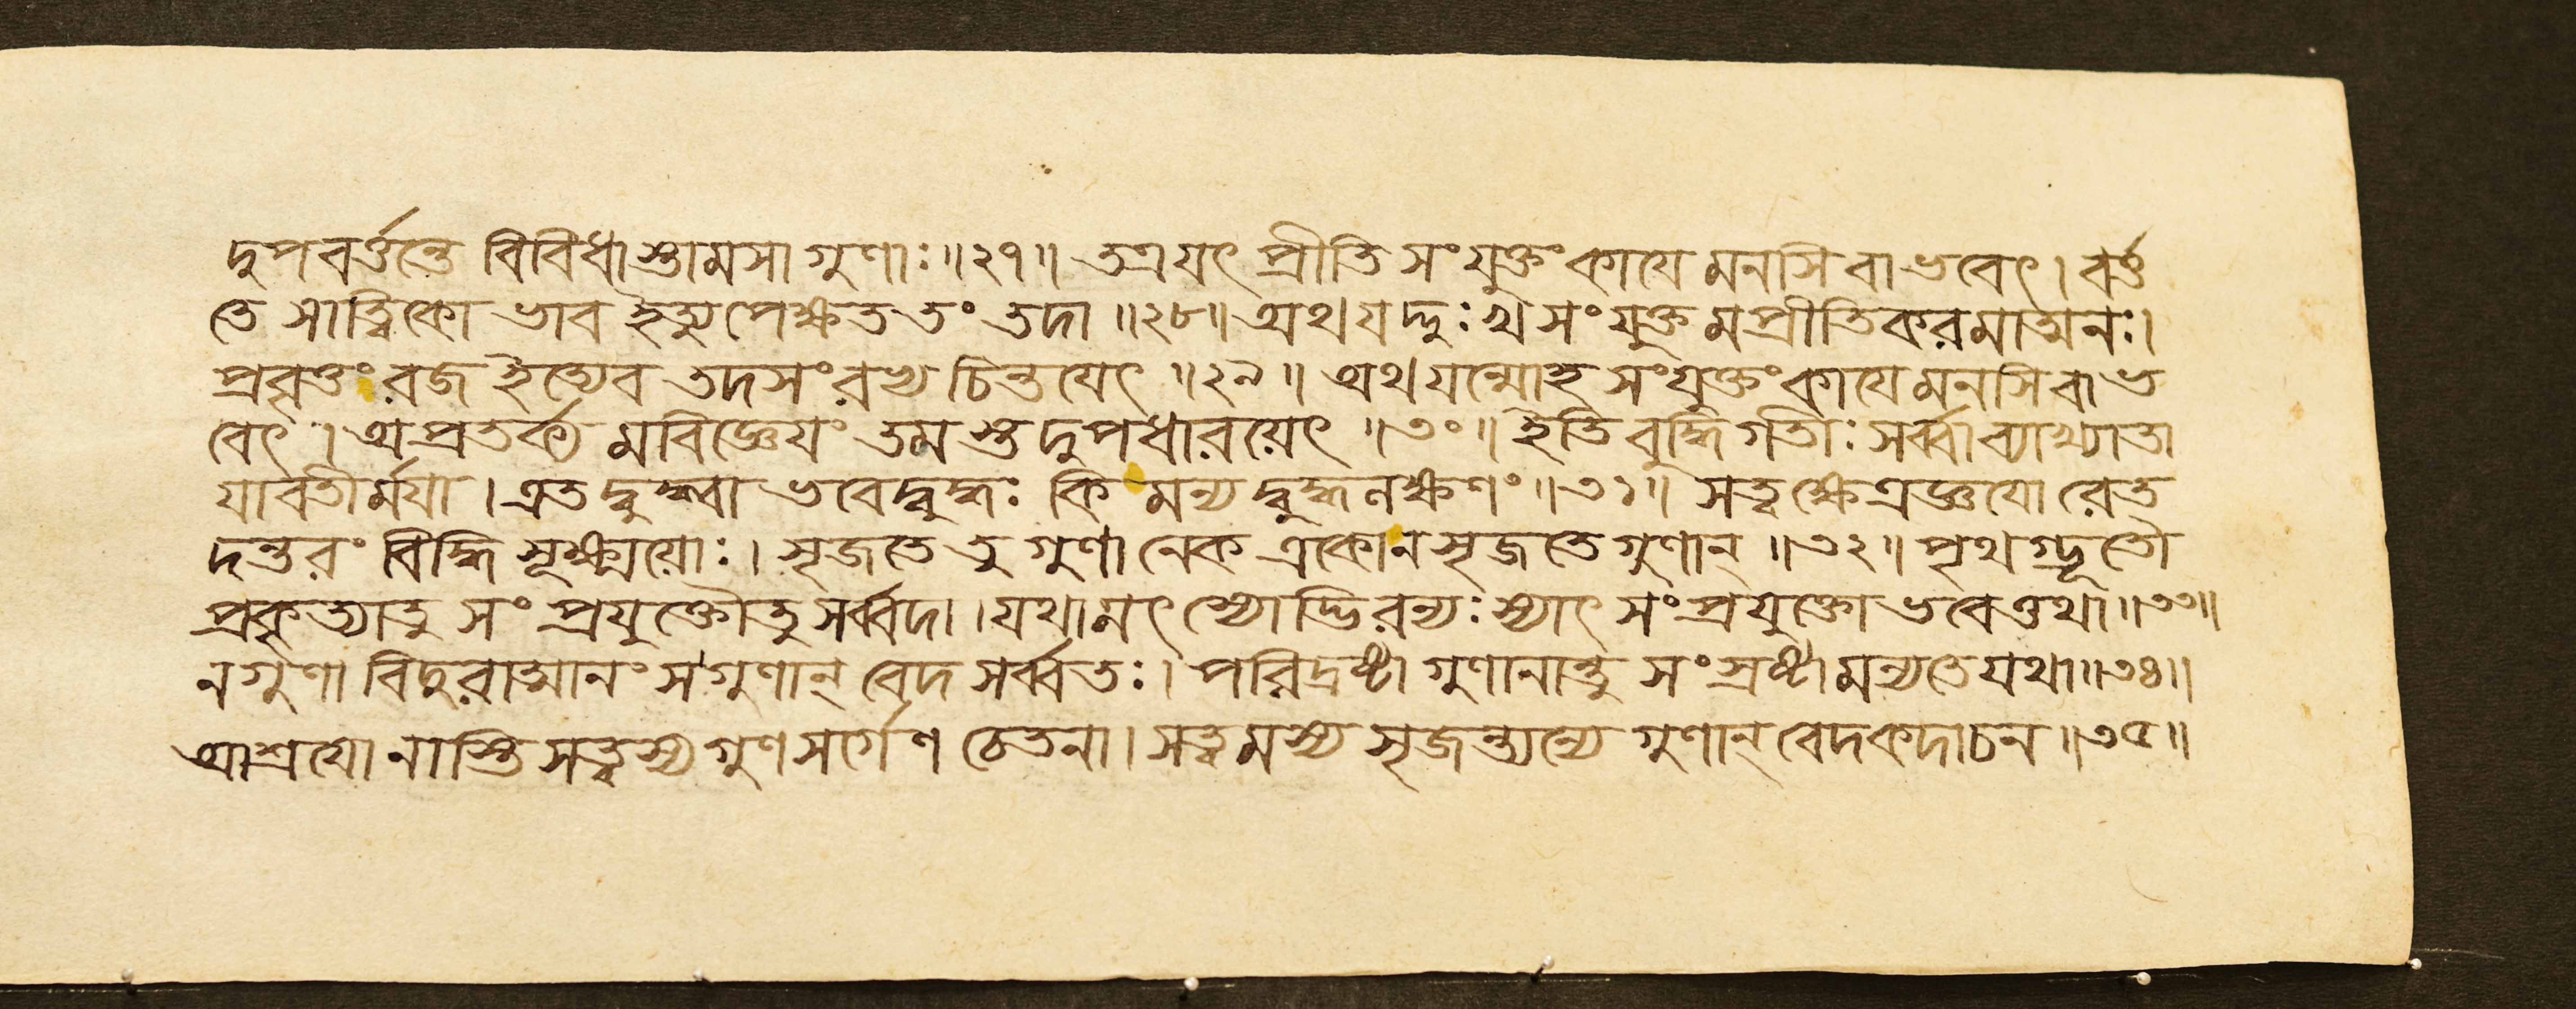 দুপবর্ত্তন্তে বিবিধাস্তামসা গুণাঃ ॥২৭॥ তত্র যৎ প্রীতি সংযুক্তং কাযে মনসি বা ভবেৎ । বর্ত্ত
তে সাত্ত্বিকো ভাব ইত্যুপেক্ষত তং তদা ॥২৮॥ অথ যদ্দুঃখ সংযুক্ত মপ্রীতিকরমাত্মনঃ ।
প্রবৃত্তং রজ ইত্যেব তদসংরভ্য চিন্তযেৎ ॥২৯॥ অথ যন্মোহ সংযুক্তং কাযে মনসি বা ভ
বেৎ । অপ্রতর্ক্য মবিজ্ঞেযং তমস্তদুপধারয়েৎ ॥৩০॥ ইতি বুদ্ধি গতীঃ সর্ব্বা ব্যাখ্যাতা
যাবতীর্ম্মযা । এতদ্বুদ্ধ্বা ভবেদ্বুদ্ধঃ কি মন্যদ্বুদ্ধলক্ষণং ॥৩১॥ সত্ত্বক্ষেত্রজ্ঞযো রেত
দন্তরং বিদ্ধি সূক্ষ্ময়োঃ । সৃজতে তু গুণা নেক একো ন সৃজতে গুণান্ ॥৩২॥ পৃথগ্ভূতৌ
প্রকৃত্যা তু সং প্রযুক্তৌ তু সর্ব্বদা । যথা মৎস্যোদ্ভিরন্যঃ স্যাৎ সংপ্রযুক্তো ভবেত্তথা ॥৩৩॥
ন গুণা বিদুরাত্মানং স গুণান্ বেদ সর্ব্বতঃ । পরিদ্রষ্টা গুণানান্তু সংস্রষ্টা মন্যতে যথা ॥৩৪॥
আশ্রযো নাস্তি সত্ত্বস্য গুণসর্গেণ চেতনা । সত্ত্বমস্য সৃজন্ত্যন্যে গুণান্ বেদ কদাচন ॥৩৫॥